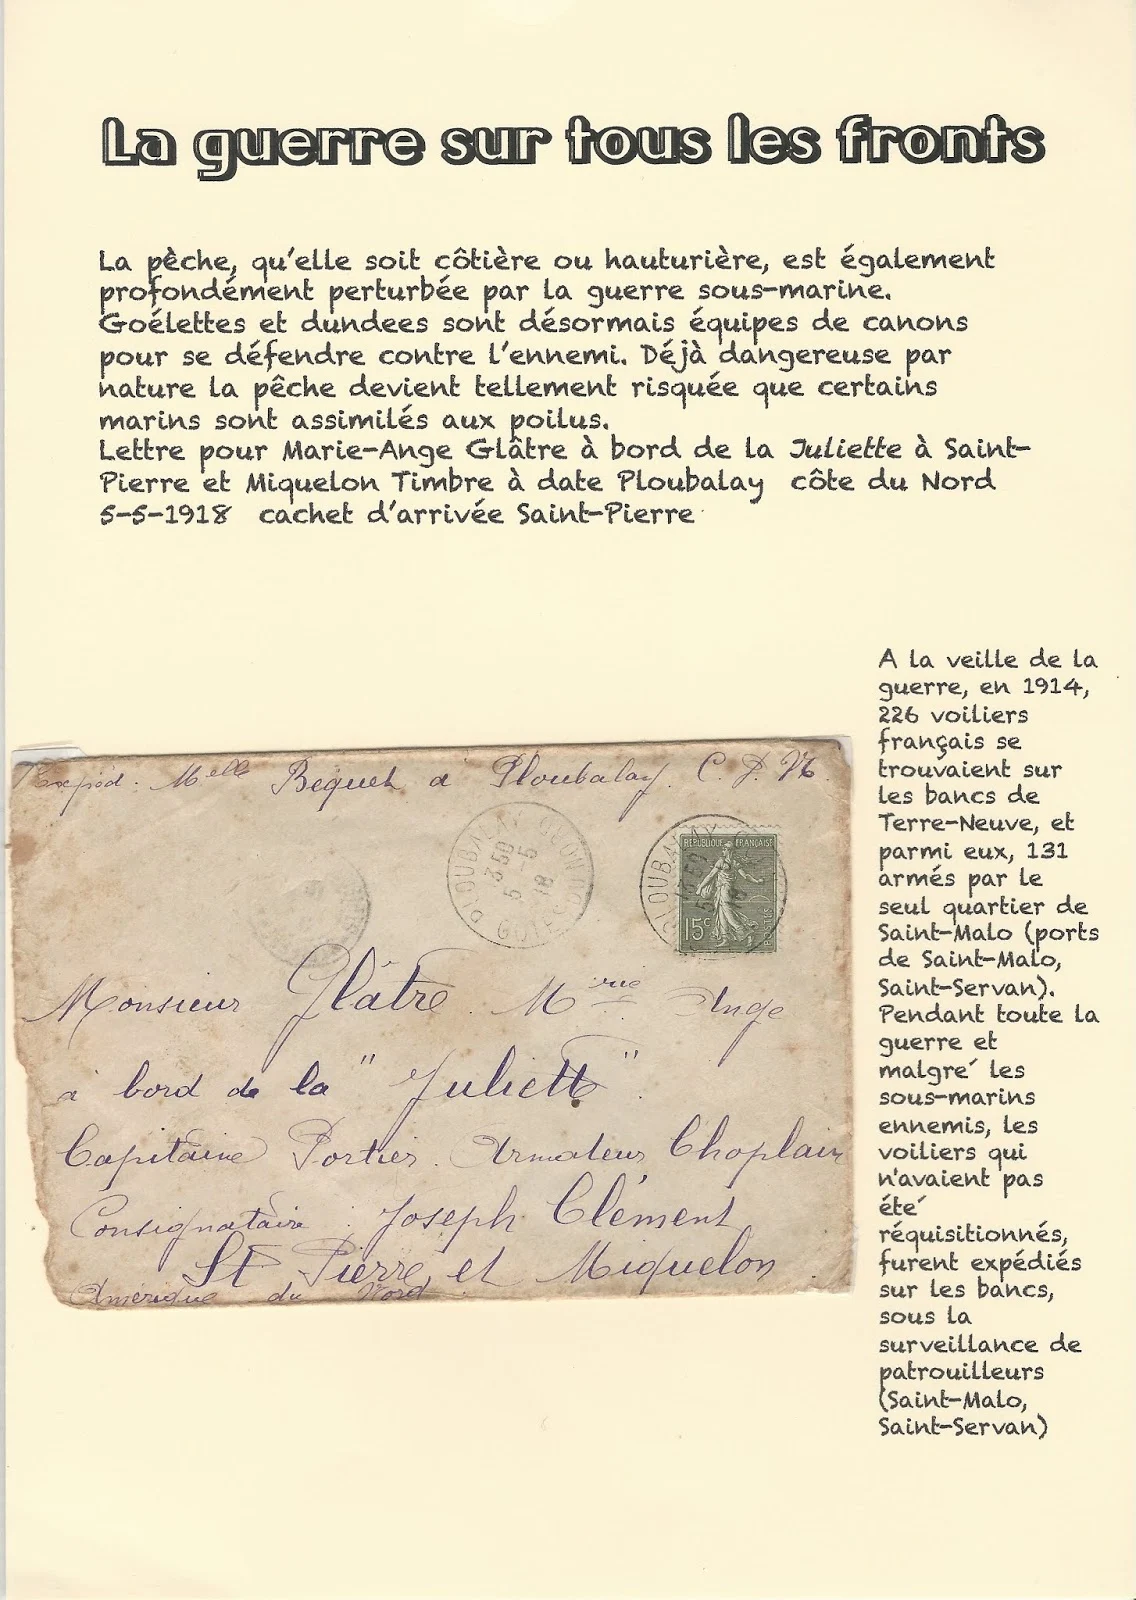 La guerre sur tous les fronts
La pèche, qu'elle soit côtière ou hauturière, est également
profondément perturbée par la guerre sous-marine.
Goélettes et dundees sont désormais équipes de canons
pour se défendre contre l'ennemi. Déjà dangereuse par
nature la pêche devient tellement risquée que certains
marins sont assimilés aux poilus.
Lettre pour Marie-Ange Glâtre à bord de la Juliette à Saint-
Pierre et Miquelon Timbre à date Ploubalay côte du Nord
5-5-1918 cachet d'arrivée Saint-Pierre
A la veille de la
guerre, en 1914,
226 voiliers
français se
trouvaient sur
les bancs de
Terre-Neuve, et
parmi eux, 131
armés par le
seul quartier de
Saint-Malo (ports
de Saint-Malo,
Saint-Servan).
Pendant toute la
guerre et
malgre´ les
sous-marins
ennemis, les
voiliers qui
n'avaient pas
éte´
réquisitionnés,
furent expédiés
sur les bancs,
sous la
surveillance de
patrouilleurs
(Saint-Malo,
Saint-Servan)
Expéd: Melle Bequet à Ploubalay. C. D. N.
PLOUBALAY
13 50
5 - 5
18
REPUBLIQUE FRANÇAISE
15c
POSTES
Monsieur Glâtre Mrie Ange
à bord de la "Juliette"
Capitaine Portier. Armateur Choplain
Consignataire : Joseph Clément
St Pierre et Miquelon
Amérique du Nord